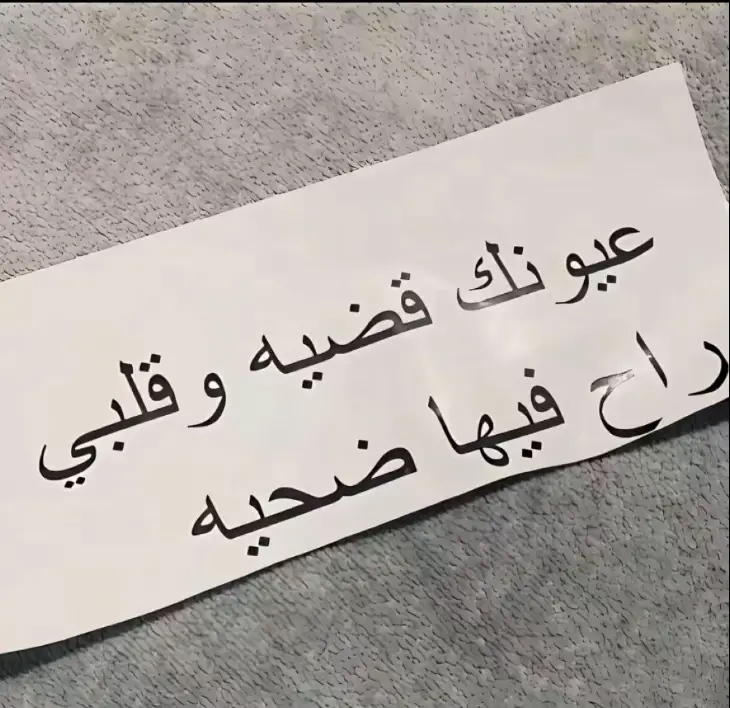 عيونك قضيه وقلبي
راح فيها ضحيه